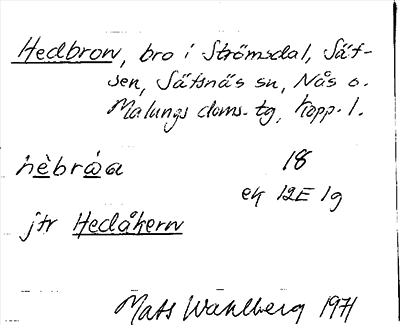 Hedbron, bro i Strömsdal, Sät-
sen, Sätsnäs sn, Nås o.
Malungs doms. tg, Kopp. l.
hèbrȧa 18
ek 12E 1g
jfr Hedåkern
Mats Wahlberg 1971